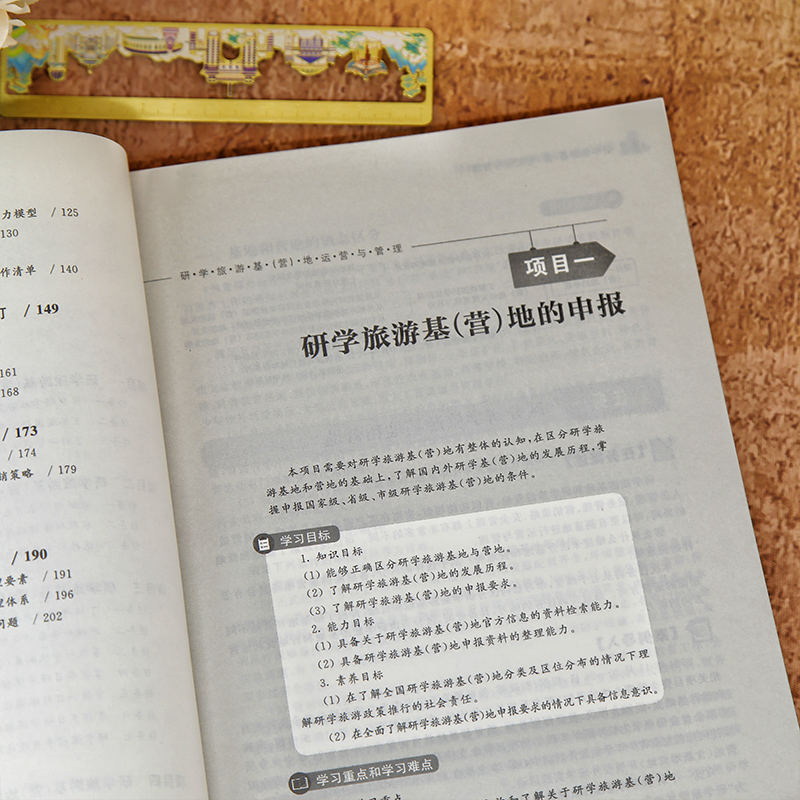 力模型 / 125
130
作清单 / 140
/ 149
161
168
/ 173
/ 174
销策略 / 179
/ 190
要素 / 191
体系 / 196
问题 / 202
研·学·旅·游·基·(营)·地·运·营·与·管·理
项目一
研学旅游基(营)地的申报
本项目需要对研学旅游基(营)地有整体的认知,在区分研学旅
游基地和营地的基础上,了解国内外研学基(营)地的发展历程,掌
握申报国家级、省级、市级研学旅游基(营)地的条件。
学习目标
1. 知识目标
(1) 能够正确区分研学旅游基地与营地。
(2) 了解研学旅游基(营)地的发展历程。
(3) 了解研学旅游基(营)地的申报要求。
2. 能力目标
(1) 具备关于研学旅游基(营)地官方信息的资料检索能力。
(2) 具备研学旅游基(营)地申报资料的整理能力。
3. 素养目标
(1) 在了解全国研学旅游基(营)地分类及区位分布的情况下理
解研学旅游政策推行的社会责任。
(2) 在全面了解研学旅游基(营)地申报要求的情况下具备信息意识。
学习重点和学习难点
了解关于研学旅游基(营)地